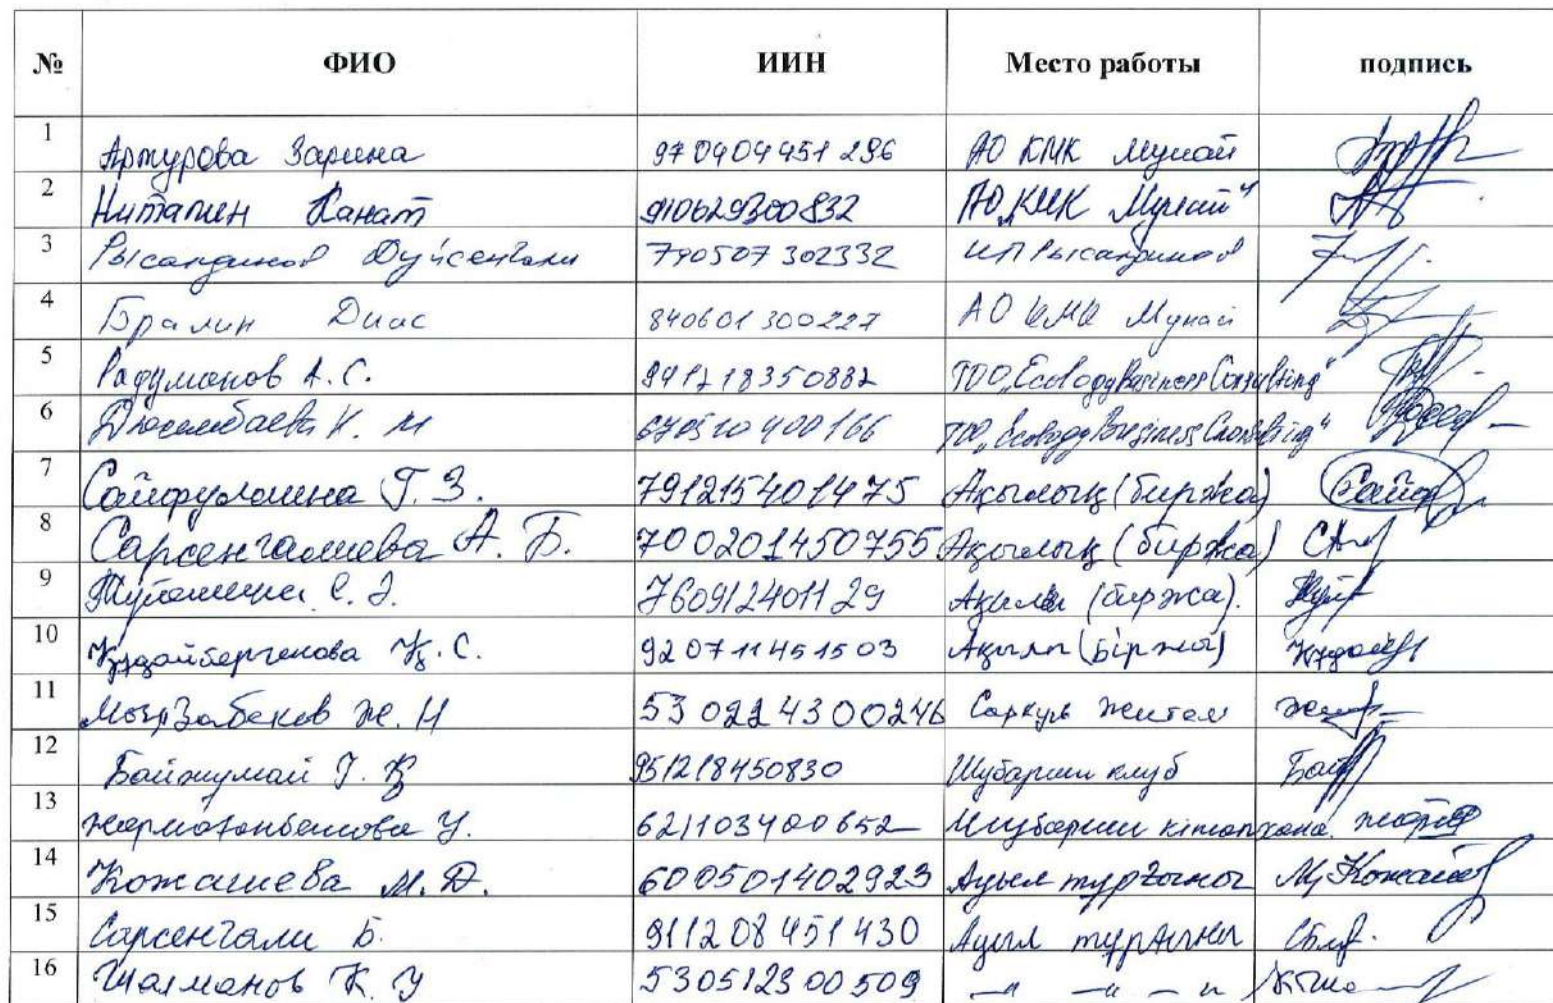 № ФИО ИИН Место работы подпись
1 Артурова Зарина 970404451296 АО КМК Мунай
2 Нитапин Канат 910629300832 АО „КМК Мунай"
3 Рысандинов Дуйсенгали 790507302332 ИП Рысандинов
4 Бралин Диас 840601300227 АО КМК Мунай
5 Радуманов А.С. 941218350882 ТОО „Ecology Business Consulting"
6 Дюсембаева К. М 670510400166 ТОО „Ecology Business Consulting"
7 Сайфуллина Г.З. 791215401475 Ақылық (биржа)
8 Сарсенгалиева А. Б. 700201450755 Ақылық (биржа)
9 760912401129 (биржа).
10 Құдайбергенова Қ.С. 920711451503 Ақылы (біржа)
11 Мырзабеков Ж.Н 530224300246 Саркул
12 Байжумай Г. Қ 951218450830 Шубарши клуб
13 У. 621103400652 Шубарши кітапхана
14 Кожашева М.Д. 600501402923 Ауыл тұрғыны
15 Сарсенгали Б. 911208451430 Ауыл тұрғыны
16 Шалманов К. У 530512300509 — " — " — "